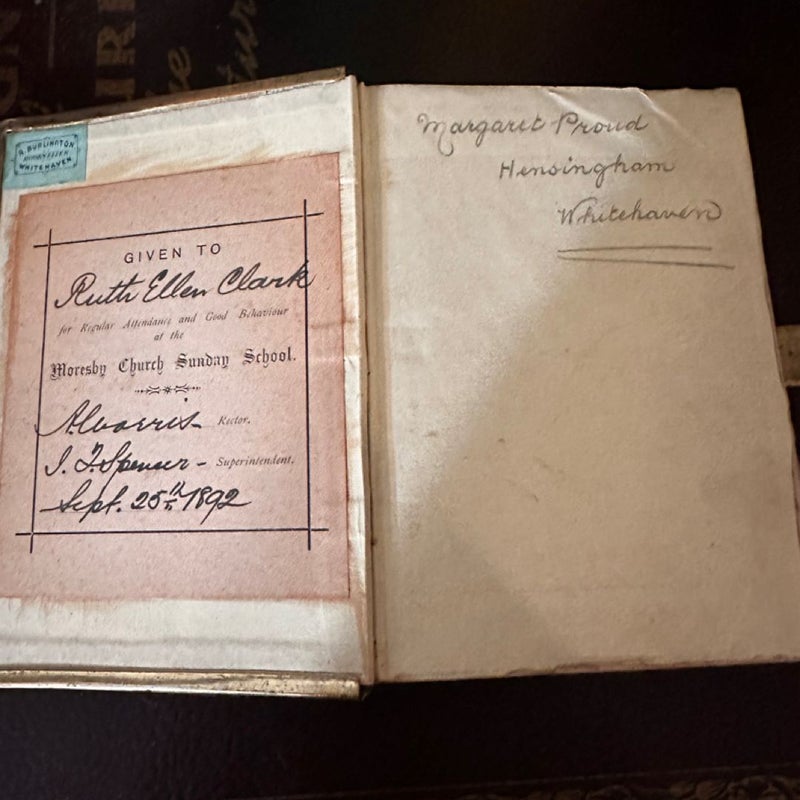 R. BURLINGTON
WHITEHAVEN
GIVEN TO
Ruth Ellen Clark
for Regular Attendance and Good Behaviour
at the
Moresby Church Sunday School.
Rector.
Spencer - Superintendent.
Sept. 25th 1892
Margaret Proud
Hensingham
Whitehaven